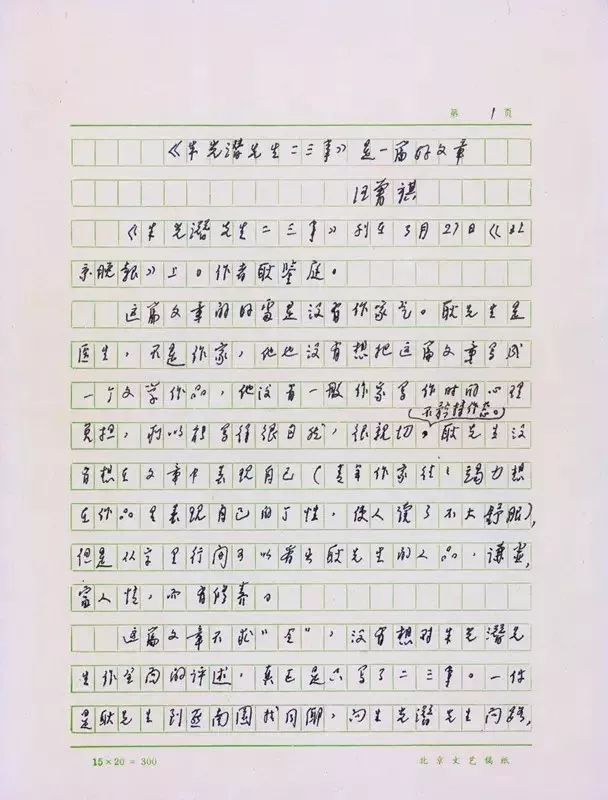 第 1 页
《朱光潜先生二三事》是一篇好文章
汪曾祺
《朱光潜先生二三事》刊在3月27日《北
京晚报》上。作者耿鉴庭。
这篇文章的好处是没有作家气。耿先生是
医生,不是作家,他也没有想把这篇文章写成
一个文学作品,他没有一般作家写作时的心理
不矜持作态。
负担,所以能写得很自然,很亲切,耿先生没
有想在文章中表现自己(青年作家往往竭力想
在作品里表现自己的个性,使人读了不大舒服),
但是从字里行间可以看出耿先生的人品,谦虚,
富人情,而有修养。
这篇文章不求“全”,没有想对朱光潜先
生作全面的评述,真正是只写了二三事。一件
是耿先生到燕南园找,向朱光潜先生问路,
15×20=300
北京文艺稿纸